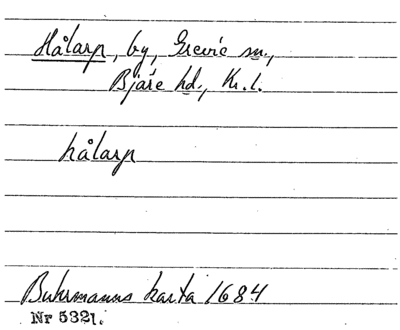 Hålarp, by, Grevie sn.,
Bjäre hd., Kr. l.
hålarp
Buhrmanns karta 1684
Nr 5321.